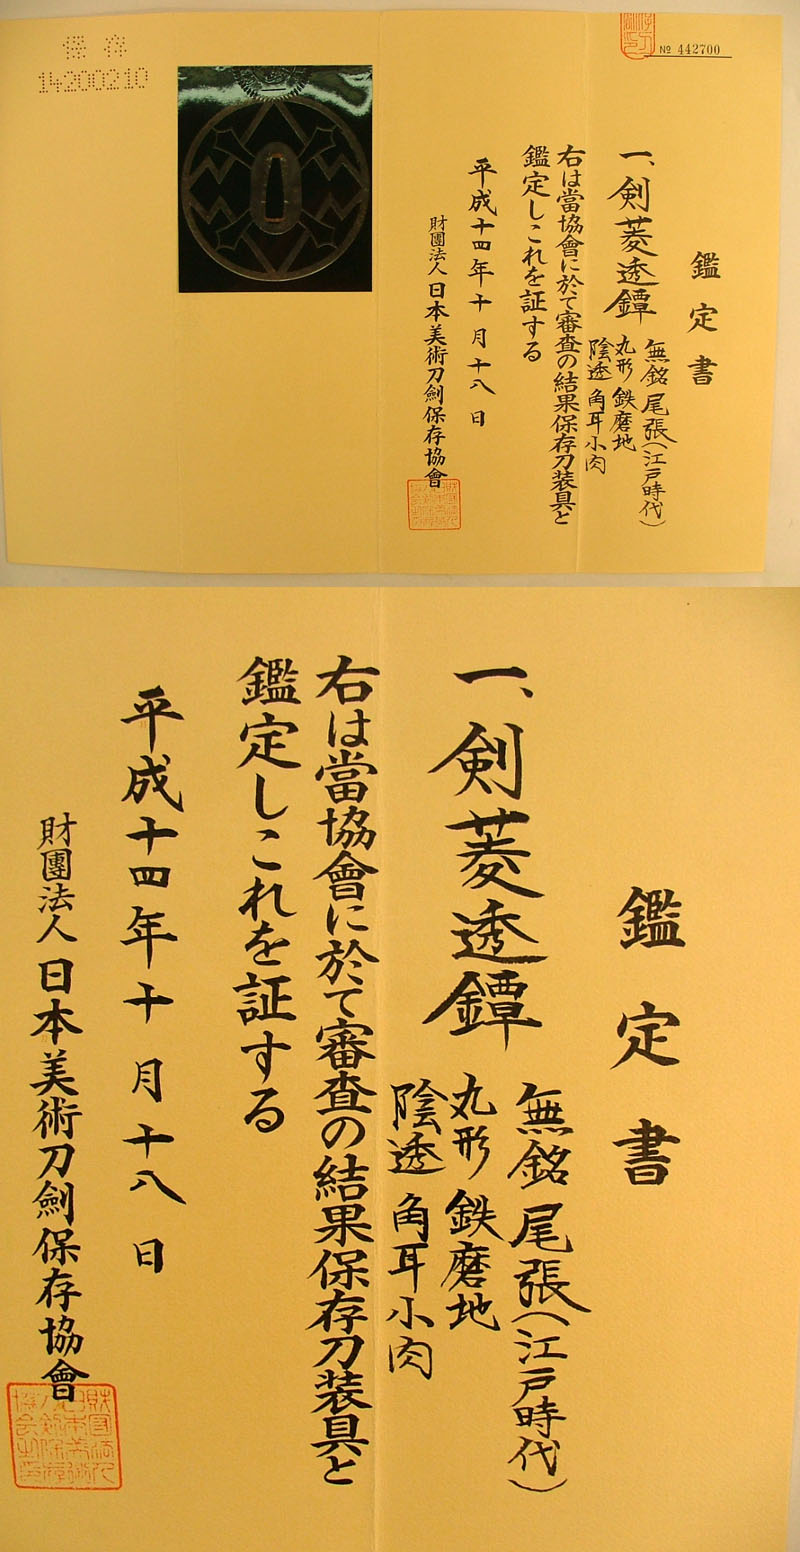 保存
14200210
№ 442700
鑑定書
一、剣菱透鐔
無銘 尾張(江戸時代)
丸形 鉄磨地
陰透 角耳小肉
右は當協會に於て審査の結果保存刀装具と
鑑定しこれを証する
平成十四年十月十八日
財團法人 日本美術刀劍保存協會
鑑定書
一、剣菱透鐔
無銘 尾張(江戸時代)
丸形 鉄磨地
陰透 角耳小肉
右は當協會に於て審査の結果保存刀装具と
鑑定しこれを証する
平成十四年十月十八日
財團法人 日本美術刀劍保存協會